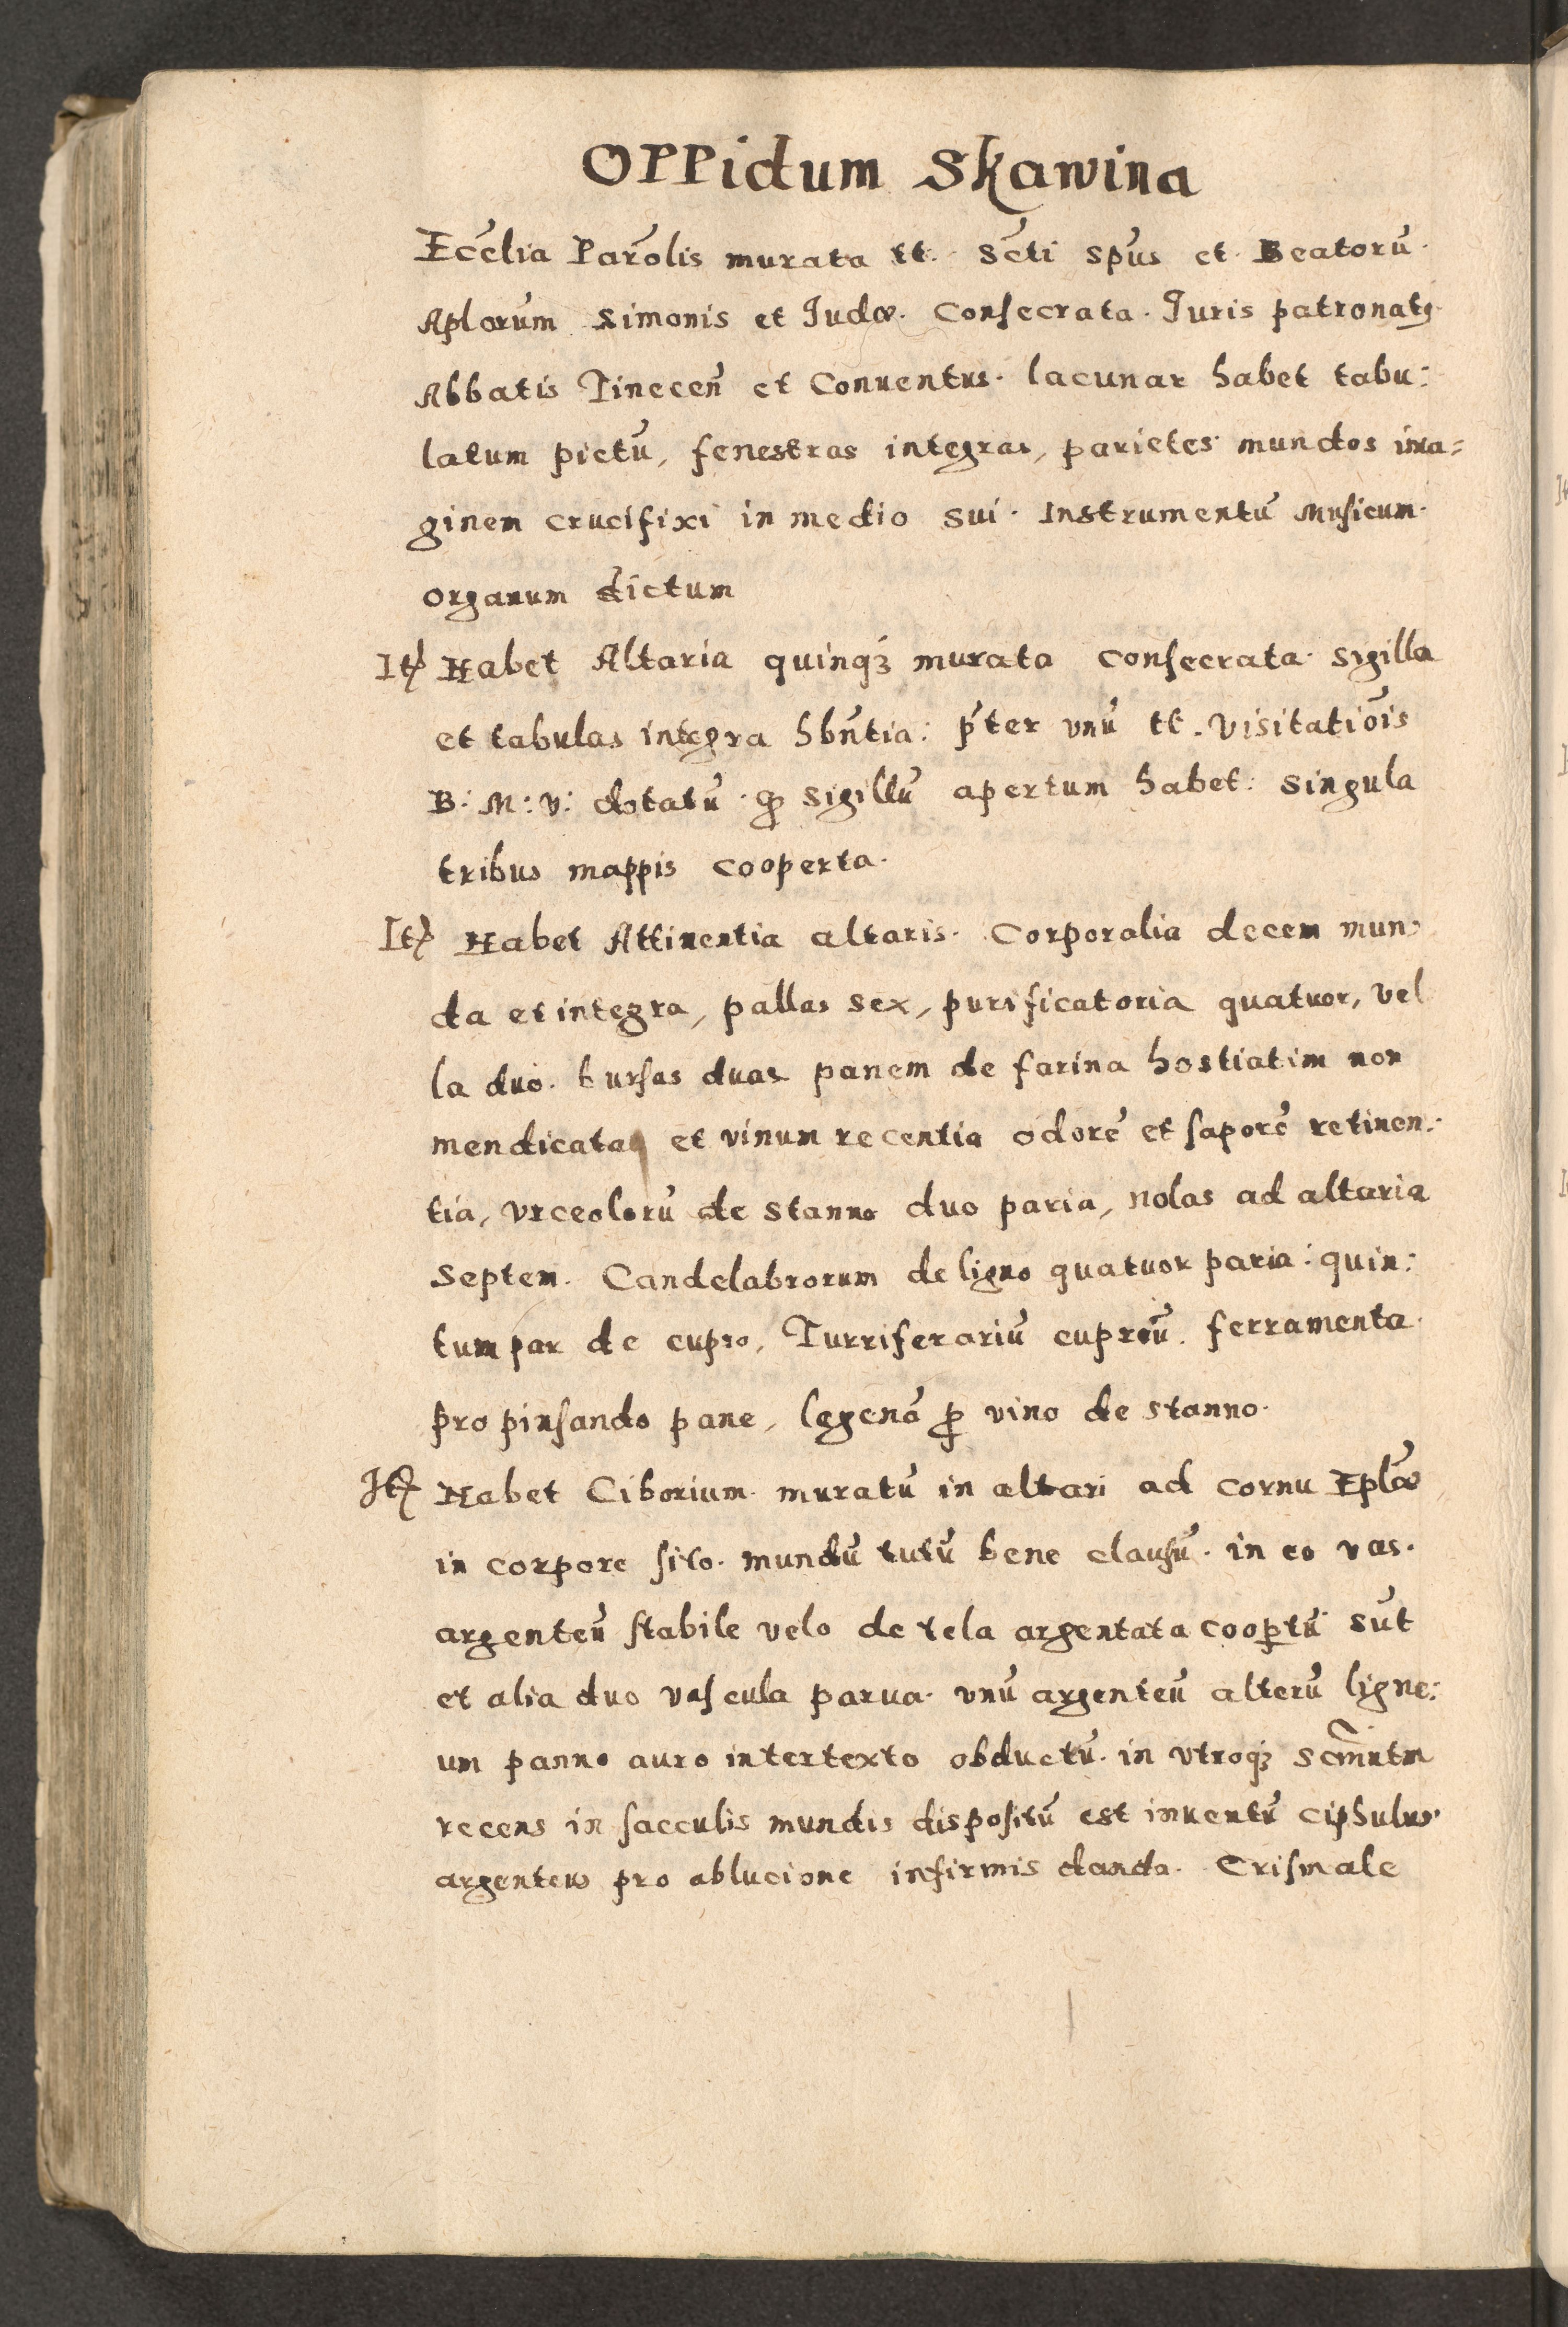 OPPidum Skawina
Ecc̄lia Parōlis murata tt. Sc̄ti Spūs et Beatorū
Aplorūm Simonis et Judæ. Consecrata. Juris patronatꝯ
Abbatis Tinecen̄ et Conuentus. lacunar habet tabu:
latum pictū, fenestras integras, parietes mundos ima=
ginem crucifixi in medio sui. Instrumentū Musicum.
organum dictum
It̄ Habet Altaria quinqꝫ murata consecrata. Sigilla
et tabulas integra hbn̄tia: p̄ter vnū tt. Visitatiōis
B: M: V: dotatū. ꝙ Sigillū apertum habet: Singula
tribus mappis cooperta.
It̄ Habet Attinentia altaris. Corporalia decem mun:
da et integra, pallas sex, purificatoria quatuor, vel
la duo. bursas duas panem de farina hostiatim non
mendicata et vinum recentia odorē et saporē retinen:
tia, vrceolorū de stanno duo paria, nolas ad altaria
Septem. Candelabrorum de ligno quatuor paria: quin:
tum par de cupro, Turriferariū cupreū. ferramenta
pro pinsando pane, lagenā ꝓ vino de stanno.
It̄ Habet Ciborium muratū in altari ad cornu Eplǣ
in corpore sito. mundū tutū bene clausū. in eo vas.
argenteū stabile velo de tela argentata cooꝑtū sūt
et alia duo vascula parua. vnū argenteū alterū ligne:
um panno auro intertexto obductū. in vtroqꝫ scm̄ntm
recens in sacculis mundis dispositū est inuentū ciphulus
argenteus pro ablucione infirmis danda. Crismale